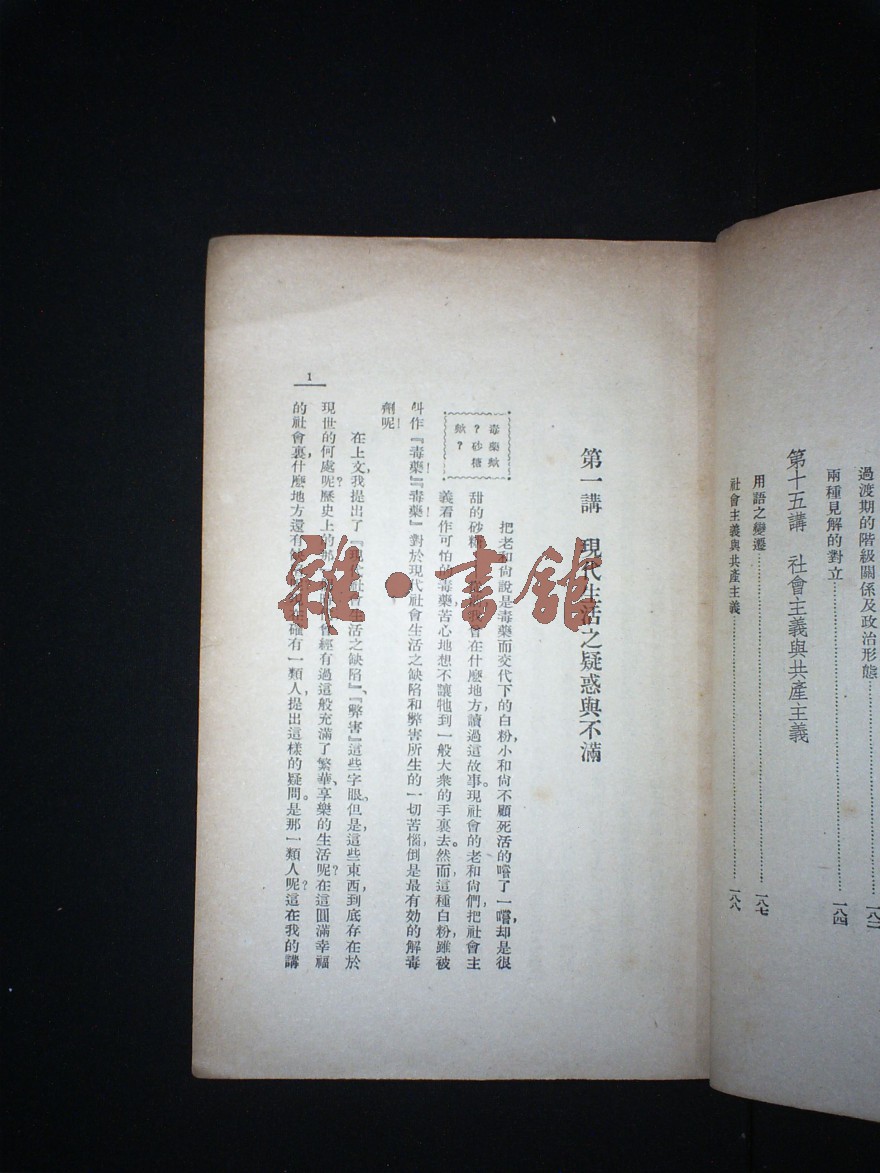 過渡期的階級關係及政治形態
兩種見解的對立……一八四
第十五講 社會主義與共產主義
用語之變遷……一八七
社會主義與共產主義……一八八
第一講 現代生活之疑惑與不滿
毒藥歟
?砂糖
歟?
把老和尙說是毒藥而交代下的白粉,小和尙不顧死活的嚐了一嚐,却是很
甜的砂糖
會在什麼地方讀過這故事。現社會的老和尙們,把社會主
義看作可怕的毒藥,苦心地想不讓牠到一般大衆的手裏去。然而這種白粉,雖被
叫作『毒藥!』『毒藥!』對於現代社會生活之缺陷和弊害所生的一切苦惱,倒是最有効的解毒
劑呢!
在上文,我提出了『現代社會生活之缺陷』、『弊害』這些字眼。但是,這些東西,到底存在於
現世的何處呢?歷史上的那
經有過這般充滿了繁華、享樂的生活呢?在這圓滿幸福
的社會裏,什麼地方還有
確有一類人,提出這樣的疑問。是那一類人呢?這在我的講
1
雜·書舘